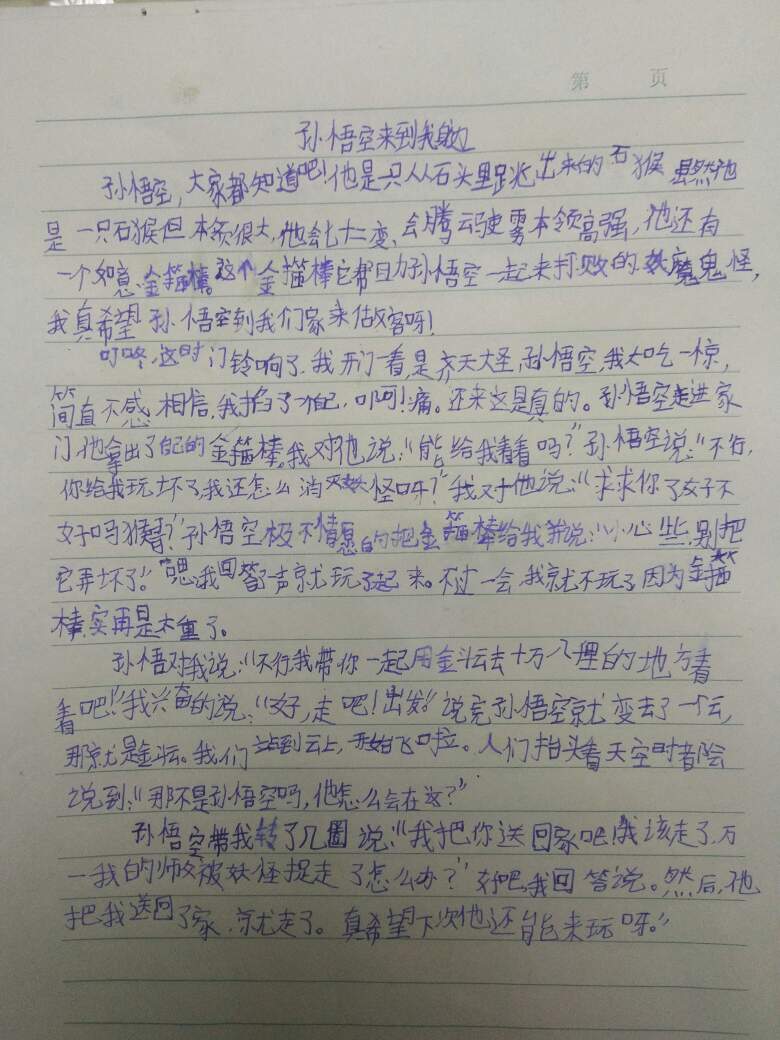 第 页
孙悟空来到我身边
孙悟空,大家都知道吧!他是只从石头里跳出来的石猴虽然他
是一只石猴但本领很大,他会七十二变、会腾云驶雾本领高强,他还有
一个如意金箍棒。这个金箍棒它帮助孙悟空一起来打败的妖魔鬼怪,
我真希望孙悟空到我们家来做客呀!
叮咚,这时门铃响了,我开门一看,是齐天大圣,孙悟空,我大吃一惊,
简直不感相信,我掐了一下自己,啊!痛。还来这是真的。孙悟空走进家
门他拿出了自己的金箍棒。我对他说:“能给我看看吗?”孙悟空说:“不行,
你给我玩坏了我还怎么消灭妖怪呀?”我对他说:“求求你了好不
好吗猴哥?”孙悟空极不情愿的把金箍棒给我并说:“小心些,别把
它弄坏了。”“嗯”我回答了一声就玩了起来。不过一会,我就不玩了因为金箍
棒,实再是太重了。
孙悟对我说:“不行我带你一起用金斗云去十万八里的地方看
看吧!”我兴奋的说:“好,走吧!出发!”说完孙悟空就变去了一个云,
那就是金斗云。我们站到云上,开始飞啦。人们抬头看天空时都会
说到:“那不是孙悟空吗,他怎么会在这?”
孙悟空带我转了几圈说:“我把你送回家吧!我该走了,万
一我的师父被妖怪捉走了怎么办?”好吧,我回答说。然后,他
把我送回了家,就走了。真希望下次他还能来玩呀。”